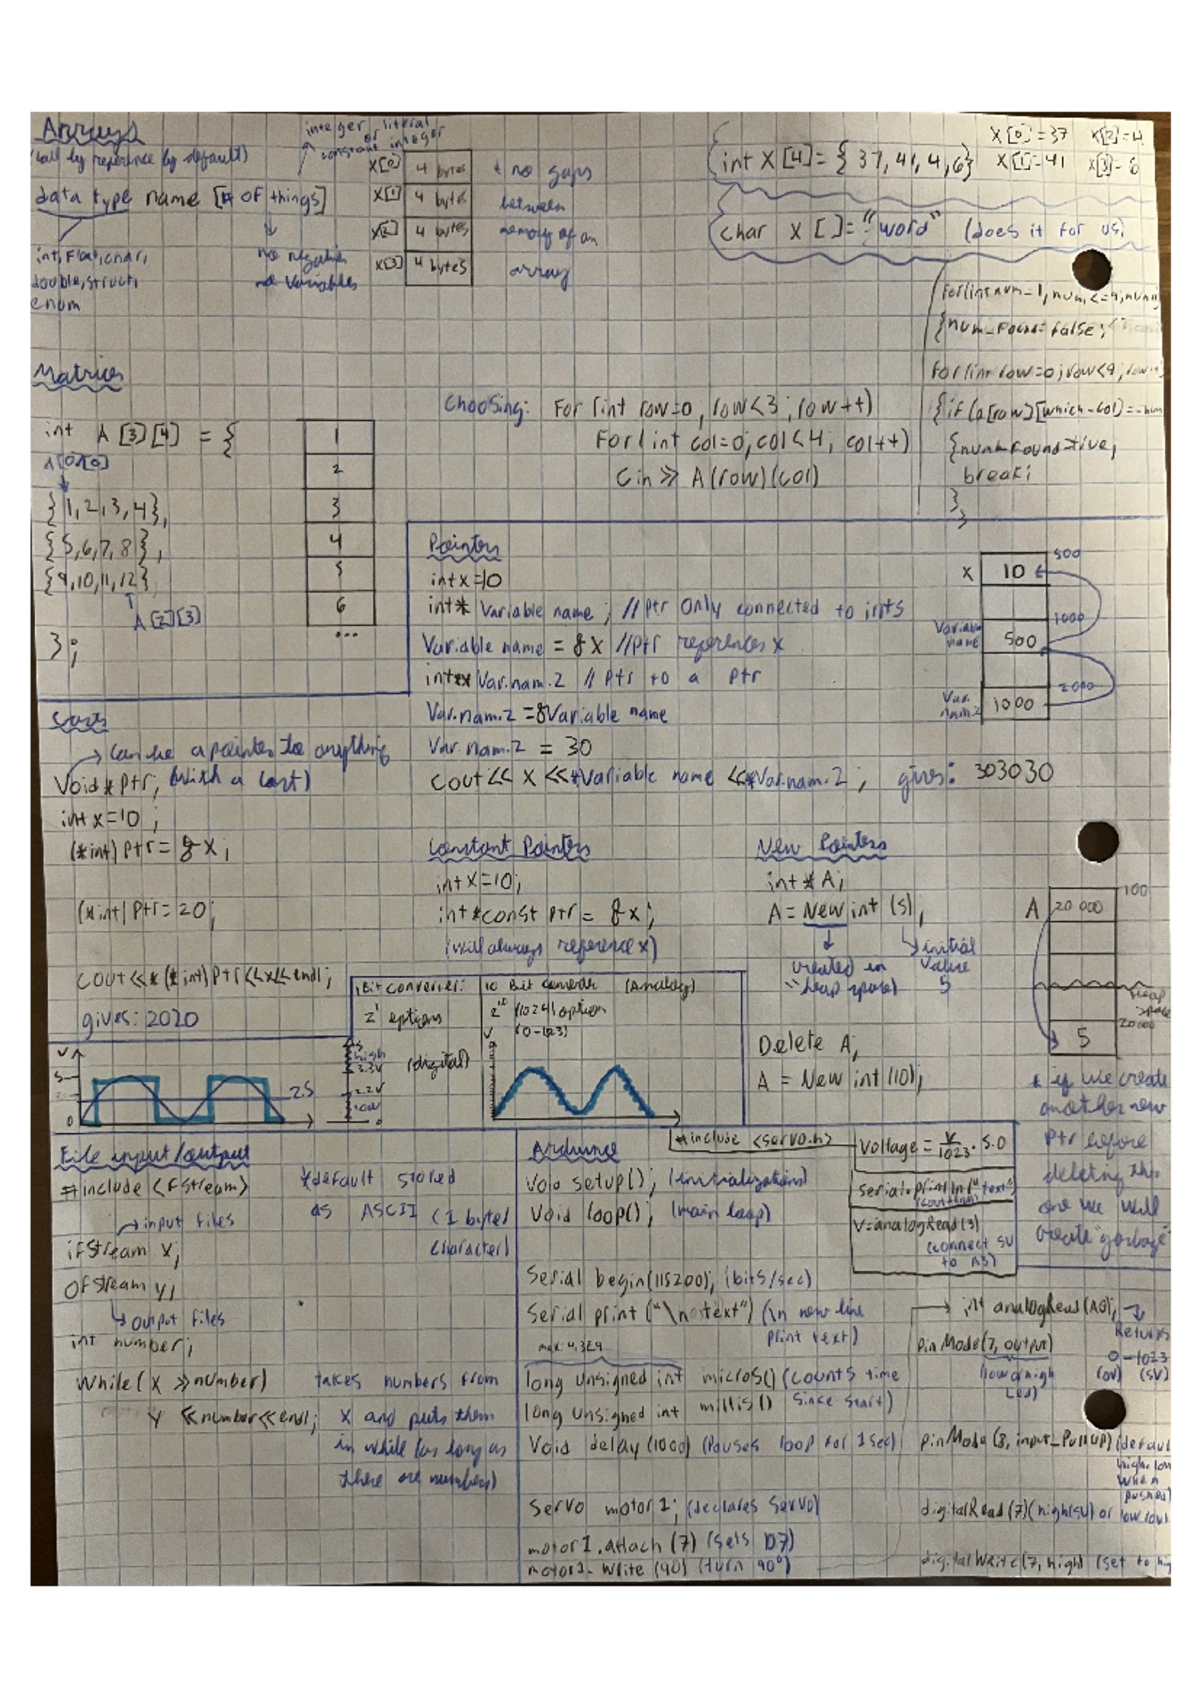 Arrays
(call by reference by default)
data type name [# of things]
int, float, char,
double, struct,
enum
no negatives
no variables
integer literal
or
constant integer
x[0] 4 bytes
x[1] 4 bytes
x[2] 4 bytes
x[3] 4 bytes
* no gaps
between
memory of an
array
int x[4] = { 37, 41, 4, 6}
x[0] = 37 x[2] = 4
x[1] = 41 x[3] = 6
char x[] = "word" (does it for us)
for(int num=1, num<=9; num
{num_found=false;
for(int row=0; row<9; row
{if (a[row][which-col]==num
{num_found=true;
break;
}
}
Matrices
int A[3][4] = {
A[0][0]
{1,2,3,4},
{5,6,7,8},
{9,10,11,12}
A[2][3]
};
1
2
3
4
5
6
...
Choosing: for (int row=0, row<3; row++)
for (int col=0; col<4; col++)
cin >> A(row)(col)
Pointers
int x=10
int* variable name; //ptr only connected to ints
Variable name = &x //ptr references x
int** Var.nam.2 // ptr to a ptr
Var.nam.2 = &Variable name
Var.nam.2 = 30
cout << x <<*Variable name <<*Var.nam.2; gives: 303030
x 10 500
1000
Variable name 500
2000
Var. nam.2 1000
Casts
can be a pointer to anything
Void * ptr; (with a cast)
int x=10;
(*int) ptr = &x;
(*int) ptr = 20;
cout <<*(*int) ptr <<x<<endl;
gives: 2020
Constant Pointers
int x=10;
int*const ptr = &x;
(will always reference x)
New Pointers
int * A;
A = New int (5);
created in
"heap space"
initial
value
5
Delete A;
A = New int (10);
A 20 000 100
heap
space
20000
5
* if we create
another new
ptr before
deleting this
one we will
create "garbage"
1 Bit converter:
2¹ options
(digital)
5
high
3.3V
2.2V
low
0
10 Bit converter (Analog)
2¹⁰ (1024) option
(0-1023)
V
V
5
0
2.5
File input/output
#include <fstream>
input files
ifstream x;
ofstream y;
output files
int number;
while (x >> number)
y <<number<<endl;
*default stored
as ASCII (1 byte
character)
takes numbers from
x and puts them
in while (as long as
there are numbers)
Arduino
#include <servo.h>
void setup(); (initialization)
Void loop(); (main loop)
Serial begin(115200); (bits/sec)
Serial print ("\n text") (\n new line
print text)
max: 4.3E9
long unsigned int micros() (counts time
long unsigned int millis() since start)
Void delay (1000) (pauses loop for 1 sec)
servo motor1; (declares servo)
motor1.attach (7) (sets D7)
motor1. write (90) (turn 90°)
Voltage = V/1023 . 5.0
serial.println("text")
V=analogRead(3)
(connect 5V
to A3)
int analogRead(A0);
Returns
0-1023
(0V) (5V)
pinMode(7, output)
(low or high
LED)
pinMode (8, input_Pullup) (defau
high, low
when
pushed)
digitalRead (7) (high(5V) or low(0V
digitalWrite(7, high) (set to hi